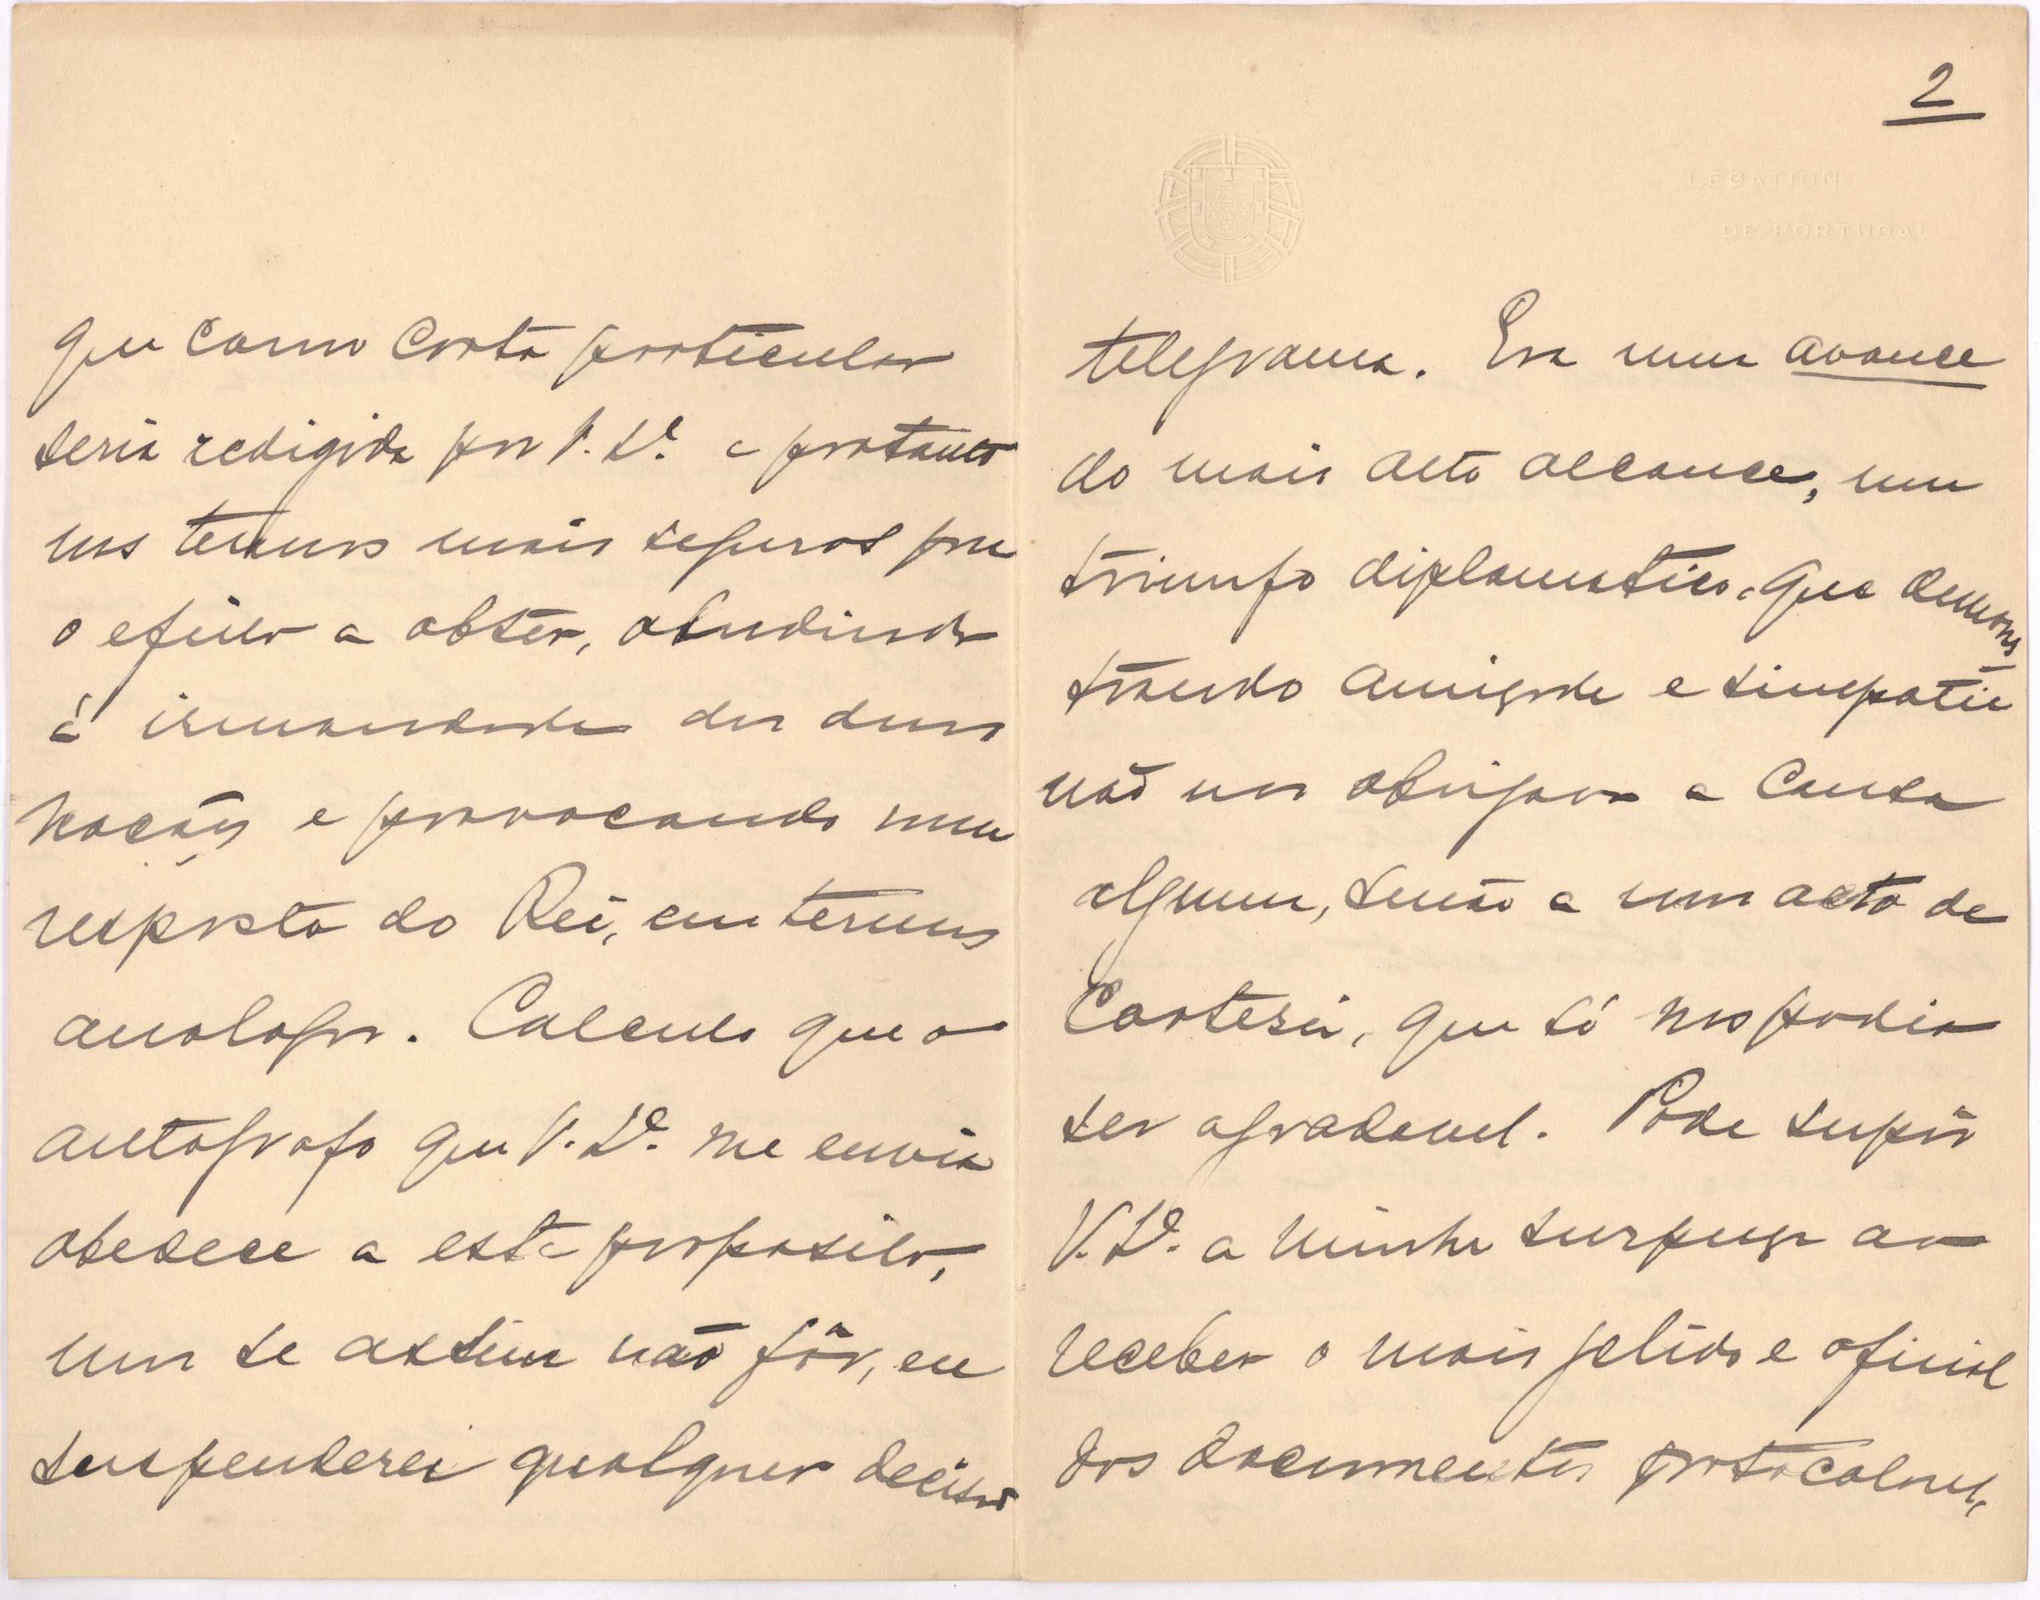 que como carta particular
seria redigida por V. Exª. e portanto
nos termos mais seguros para
o efeito a obter, aludindo
á irmandade das duas
Nações e provocando uma
resposta do Rei, em termos
analogos. Calculo que o
autógrafo que V. Exª. me envia
obedece a este proposito,
mas se assim não fôr, eu
suspenderei qualquer decisão
2
LEGATION
DE PORTUGAL
telegrama. Era um avance
do mais alto alcance, um
triunfo diplomatico, que demons-
trando amizade e simpatia
não nos obrigava a causa
alguma, senão a um acto de
Cortesia, que só nos podia
ser agradavel. Pode supôr
V. Exª. a minha surpreza ao
receber o mais gelido e oficial
dos documentos protocolares,